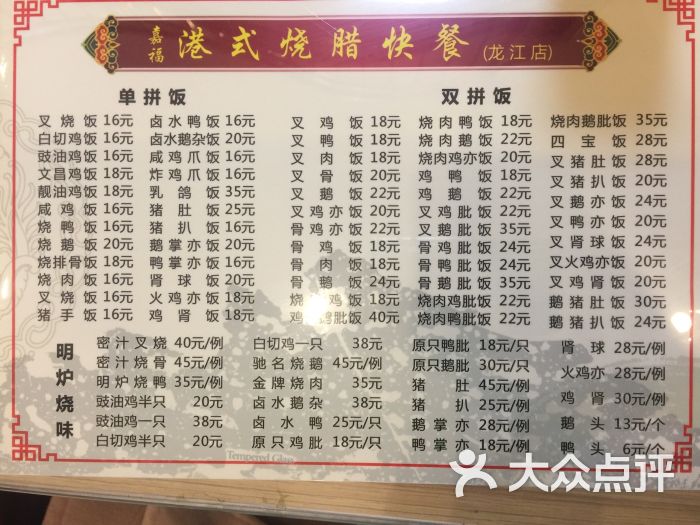 嘉福 港式烧腊快餐(龙江店)
单拼饭
叉烧饭 16元 卤水鸭饭 16元
白切鸡饭 16元 卤水鹅杂饭 20元
豉油鸡饭 16元 咸鸡爪饭 16元
文昌鸡饭 18元 炸鸡爪饭 16元
靓油鸡饭 18元 乳鸽饭 35元
咸鸡饭 16元 猪肚饭 25元
烧鸭饭 16元 猪扒饭 16元
烧鹅饭 20元 鹅掌亦饭 20元
烧排骨饭 18元 鸭掌亦饭 16元
烧肉饭 16元 肾球饭 20元
叉烧饭 16元 火鸡亦饭 18元
猪手饭 16元 鸡肾饭 18元
双拼饭
叉鸡饭 18元 烧肉鸭饭 18元 烧肉鹅肶饭 35元
叉鸭饭 18元 烧肉鹅饭 22元 四宝饭 28元
叉肉饭 18元 烧肉鸡亦饭 20元 叉猪肚饭 28元
叉骨饭 20元 鸡鸭饭 18元 叉猪扒饭 20元
叉鹅饭 22元 鸡鹅饭 22元 叉鹅亦饭 24元
叉鸡亦饭 20元 叉鸡肶饭 22元 叉鸭亦饭 20元
骨鸡亦饭 22元 叉鹅肶饭 35元 叉肾球饭 24元
骨鸡饭 18元 骨鸡肶饭 24元 叉火鸡亦饭 20元
骨肉饭 18元 骨鸭肶饭 24元 叉鸡肾饭 20元
骨鹅饭 24元 骨鹅肶饭 35元 鹅猪肚饭 30元
烧肉鸡饭 18元 烧肉鸡肶饭 22元 鹅猪扒饭 24元
鸡鹅肶饭 40元 烧肉鸭肶饭 22元
明炉烧味
密汁叉烧 40元/例 白切鸡一只 38元 原只鸭肶 18元/只 肾球 28元/例
密汁烧骨 45元/例 驰名烧鹅 45元/例 原只鹅肶 30元/只 火鸡亦 28元/例
明炉烧鸭 35元/例 金牌烧肉 35元 猪肚 45元/例 鸡肾 30元/例
豉油鸡半只 20元 卤水鹅杂 38元 猪扒 25元/例 鹅头 13元/个
豉油鸡一只 38元 卤水鸭 25元/只 鹅掌亦 28元/例 鸭头 6元/个
白切鸡半只 20元 原只鸡肶 18元/只 鸭掌亦 18元/例
Tempered Glass
大众点评